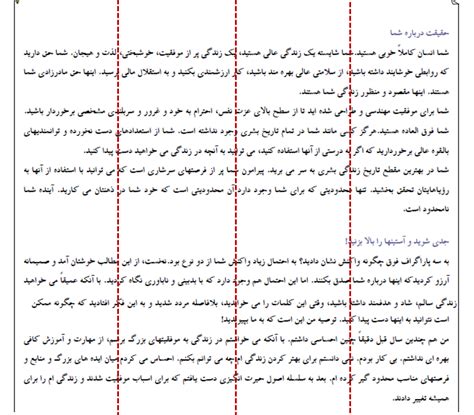 حقیقت درباره شما
شما انسان کاملاً خوبی هستید. شما شایسته یک زندگی عالی هستید، یک زندگی پر از موفقیت، خوشبختی، لذت و هیجان. شما حق دارید
که روابطی خوشایند داشته باشید، از سلامتی عالی بهره مند باشید، کار ارزشمندی بکنید و به استقلال مالی برسید. اینها حق مادرزادی شما
هستند. اینها مقصود و منظور زندگی شما هستند.
شما برای موفقیت مهندسی و طراحی شده اید تا از سطح بالای عزت نفس، احترام به خود و غرور و سربلندی مشخصی برخوردار باشید.
شما فوق العاده هستید. هرگز کسی مانند شما در تمام تاریخ بشری وجود نداشته است. شما از استعدادهای دست نخورده و توانمندیهای
بالقوه عالی برخوردارید که اگر به درستی از آنها استفاده کنید، می توانید به آنچه در زندگی می خواهید دست پیدا کنید.
شما در بهترین مقطع تاریخ زندگی بشری به سر می برید. پیرامون شما پر از فرصتهای سرشاری است که می توانید با استفاده از آنها به
رؤیاهایتان تحقق بخشید. تنها محدودیتی که برای شما وجود دارد آن محدودیتی است که خود شما در ذهنتان می کارید. آینده شما
نامحدود است.
جدی شوید و آستینها را بالا بزنید!
به سه پاراگراف فوق چگونه واکنش نشان دادید؟ به احتمال زیاد واکنش شما از دو نوع بود. نخست، از این مطالب خوشتان آمد و صمیمانه
آرزو کردید که اینها درباره شما صدق بکنند. اما این احتمال هم وجود دارد که با بدبینی و ناباوری نگاه کردید. با آنکه عمیقاً می خواهید
زندگی سالم، شاد و هدفمند داشته باشید، وقتی این کلمات را می خواندید، بلافاصله مردد شدید و به این فکر افتادید که چگونه ممکن
است بتوانید به اینها دست پیدا کنید. توصیه من این است که به ما بپیوندید!
من هم چندین سال قبل دقیقاً چنین احساسی داشتم. با آنکه می خواستم در زندگی به موفقیتهای بزرگ برسم، از مهارت و آموزش کافی
بهره ای نداشتم. بی کار بودم. نمی دانستم برای بهتر کردن زندگی ام چه می توانم بکنم. احساس می کردم میان ایده های بزرگ و منابع و
فرصتهای مناسب محدود گیر کرده ام. بعد به سلسله اصول حیرت انگیزی دست یافتم که برای اسباب موفقیت شدند و زندگی ام را برای
همیشه تغییر دادند.